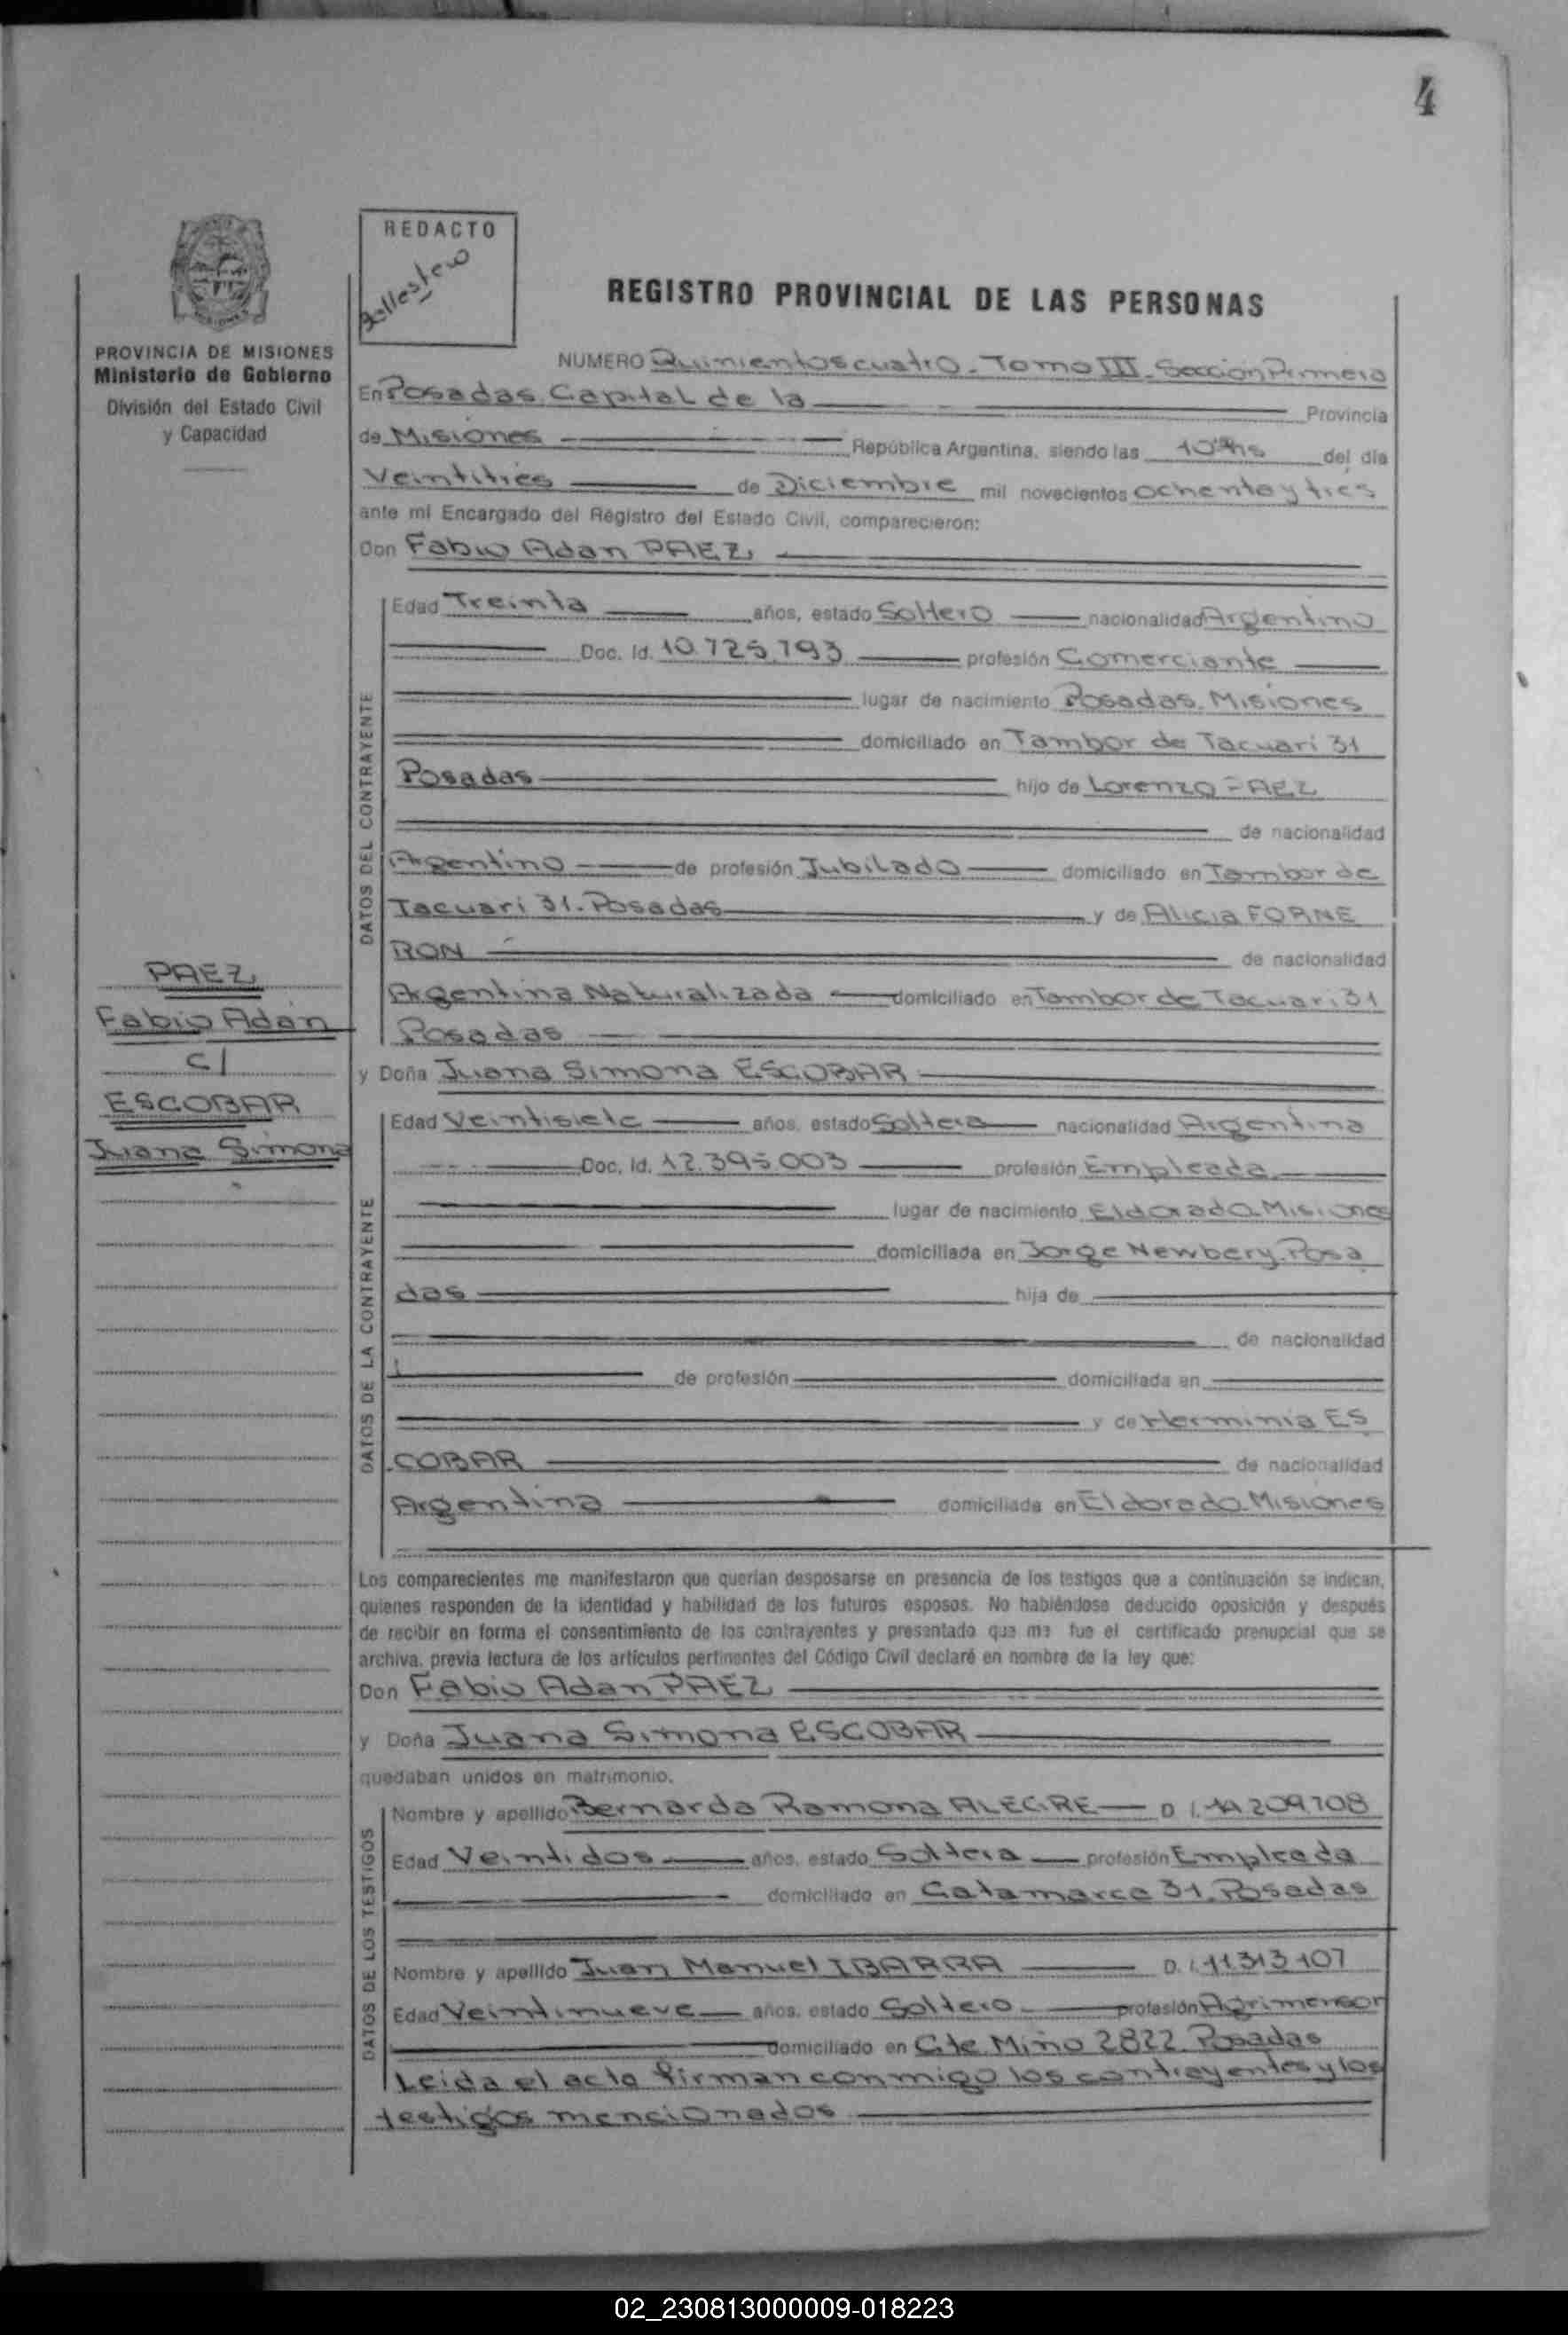 4
REDACTO
Ballestero
REGISTRO PROVINCIAL DE LAS PERSONAS
PROVINCIA DE MISIONES
Ministerio de Gobierno
División del Estado Civil
y Capacidad
NUMERO Quinientos cuatro. Tomo III. Seccion Primera
En Posadas. Capital de la Provincia
de Misiones República Argentina, siendo las 10 hs del día
Veintitrés de Diciembre mil novecientos ochenta y tres
ante mi Encargado del Registro del Estado Civil, comparecieron:
Don Fabio Adan PAEZ
Edad Treinta años, estado Soltero nacionalidad Argentino
Doc. Id. 10.725.793 profesión Comerciante
lugar de nacimiento Posadas. Misiones
domiciliado en Tambor de Tacuari 31
Posadas hijo de Lorenzo PAEZ
de nacionalidad
Argentino de profesión Jubilado domiciliado en Tambor de
Tacuari 31. Posadas y de Alicia FORNE
RON de nacionalidad
Argentina Naturalizada domiciliado en Tambor de Tacuari 31
Posadas
DATOS DEL CONTRAYENTE
PAEZ
Fabio Adan
C/
ESCOBAR
Juana Simona
y Doña Juana Simona ESCOBAR
Edad Veintisiete años, estado Soltera nacionalidad Argentina
Doc. Id. 12.395.003 profesión Empleada
lugar de nacimiento Eldorado. Misiones
domiciliada en Jorge Newbery. Posa
das hija de
de nacionalidad
de profesión domiciliada en
y de Herminia ES
COBAR de nacionalidad
Argentina domiciliada en Eldorado. Misiones
DATOS DE LA CONTRAYENTE
Los comparecientes me manifestaron que querían desposarse en presencia de los testigos que a continuación se indican,
quienes responden de la identidad y habilidad de los futuros esposos. No habiéndose deducido oposición y después
de recibir en forma el consentimiento de los contrayentes y presentado que me fue el certificado prenupcial que se
archiva, previa lectura de los artículos pertinentes del Código Civil declaré en nombre de la ley que:
Don Fabio Adan PAEZ
y Doña Juana Simona ESCOBAR
quedaban unidos en matrimonio.
Nombre y apellido Bernarda Ramona ALEGRE D. I. 14.209.708
Edad Veintidos años, estado Soltera profesión Empleada
domiciliado en Catamarca 31. Posadas
Nombre y apellido Juan Manuel IBARRA D. I. 11.313.107
Edad Veintinueve años, estado Soltero profesión Agrimensor
domiciliado en Cte Miño 2822. Posadas
DATOS DE LOS TESTIGOS
Leida el acta firman conmigo los contrayentes y los
testigos mencionados
02_230813000009-018223